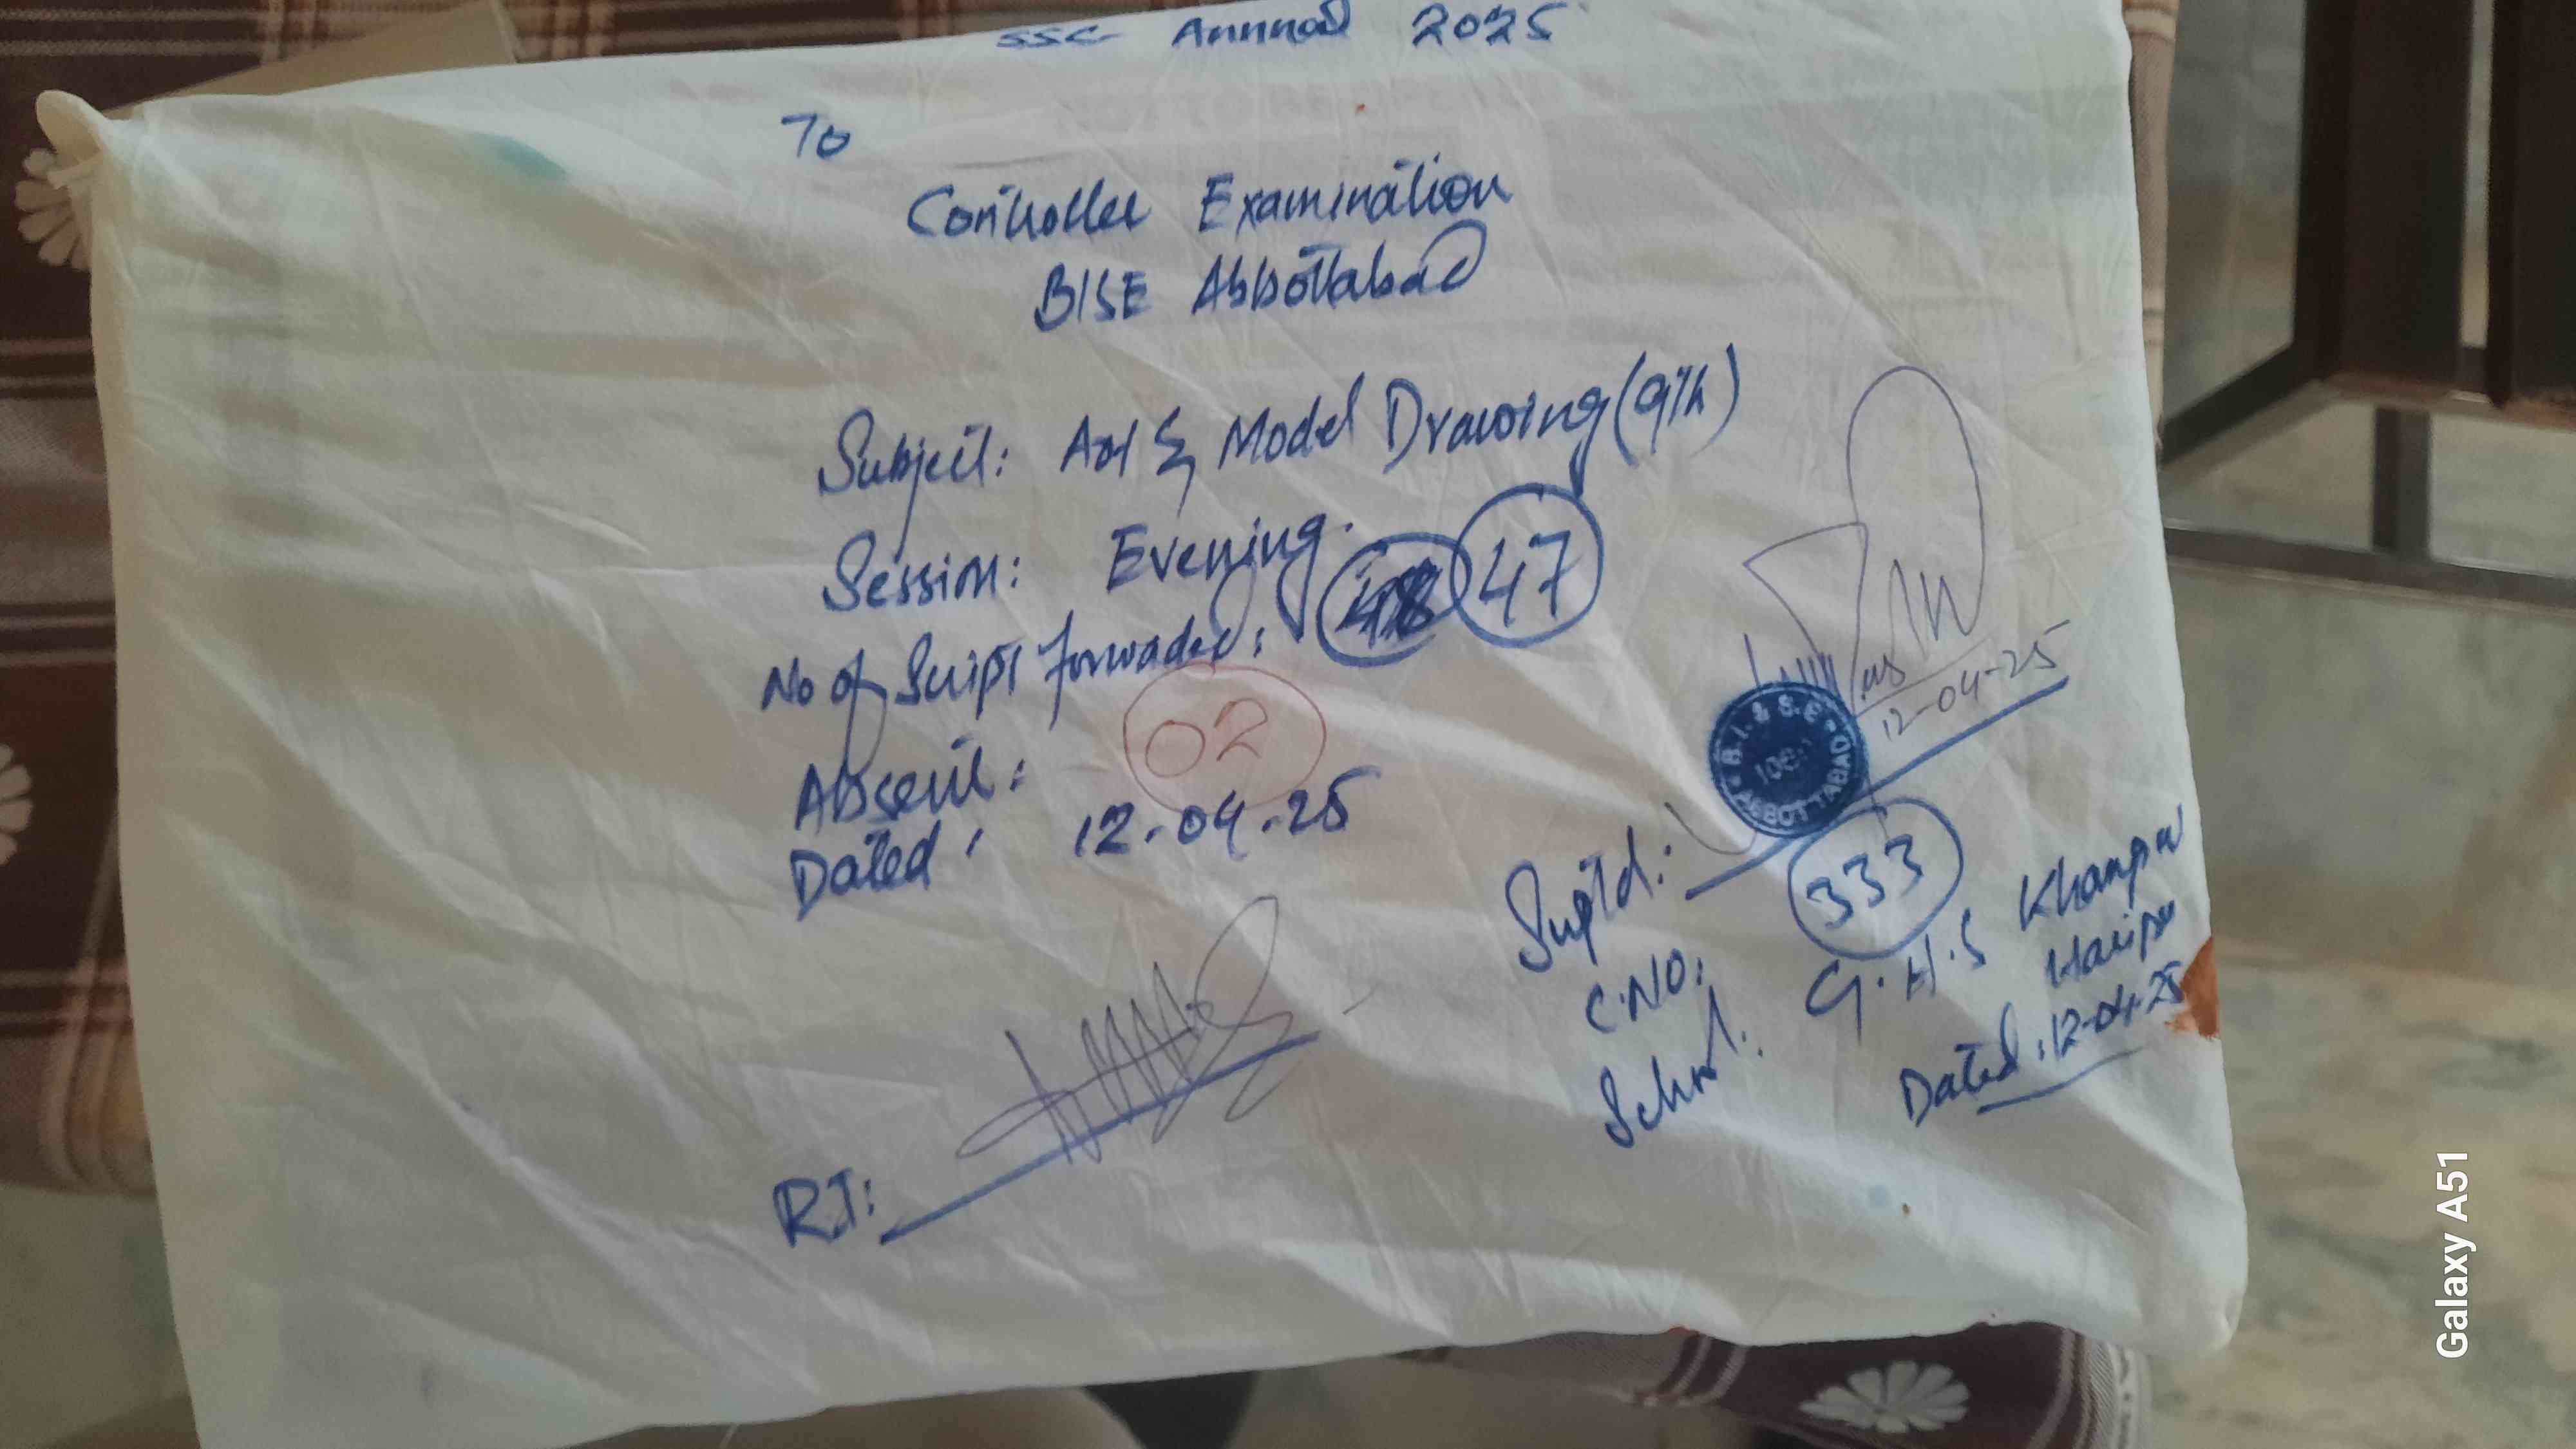 SSC Annual 2025
To
Controller Examination
BISE Abbottabad
Subject: Art & Model Drawing (9th)
Session: Evening.
No of Script forwaded: 47
Absent: 02
Dated: 12-04-25
12-04-25
B.I. & S.E
ABBOTTABAD
Suptd:
C.NO: 333
School: G.H.S Khanpur
Haripur
Dated: 12-04-25
RI:
Galaxy A51